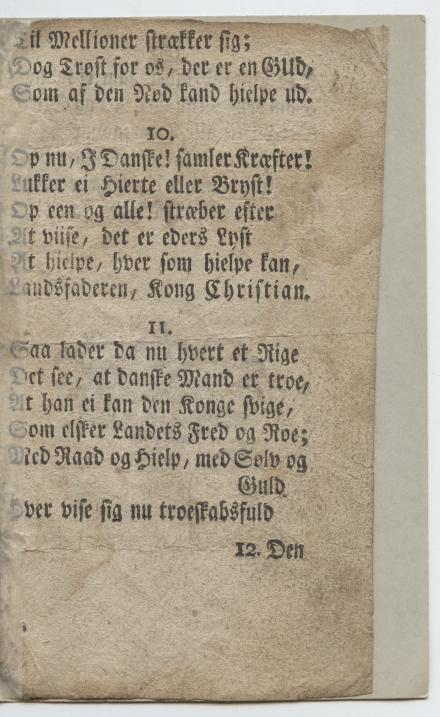 Til Mellioner strækker sig;
Dog Trøst for os, der er en GUd,
Som af den Nød kand hielpe ud.
10.
Op nu, I Danske! samler Kræfter!
Lukker ei Hierte eller Bryst!
Op een og alle! stræber efter
At viise, det er eders Lyst
At hielpe, hver som hielpe kan,
Landsfaderen, Kong Christian.
11.
Saa lader da nu hvert et Rige
Det see, at danske Mand er troe,
At han ei kan den Konge svige,
Som elsker Landets Fred og Roe;
Med Raad og Hielp, med Sølv og
Guld
Hver vise sig nu troeskabsfuld
12. Den